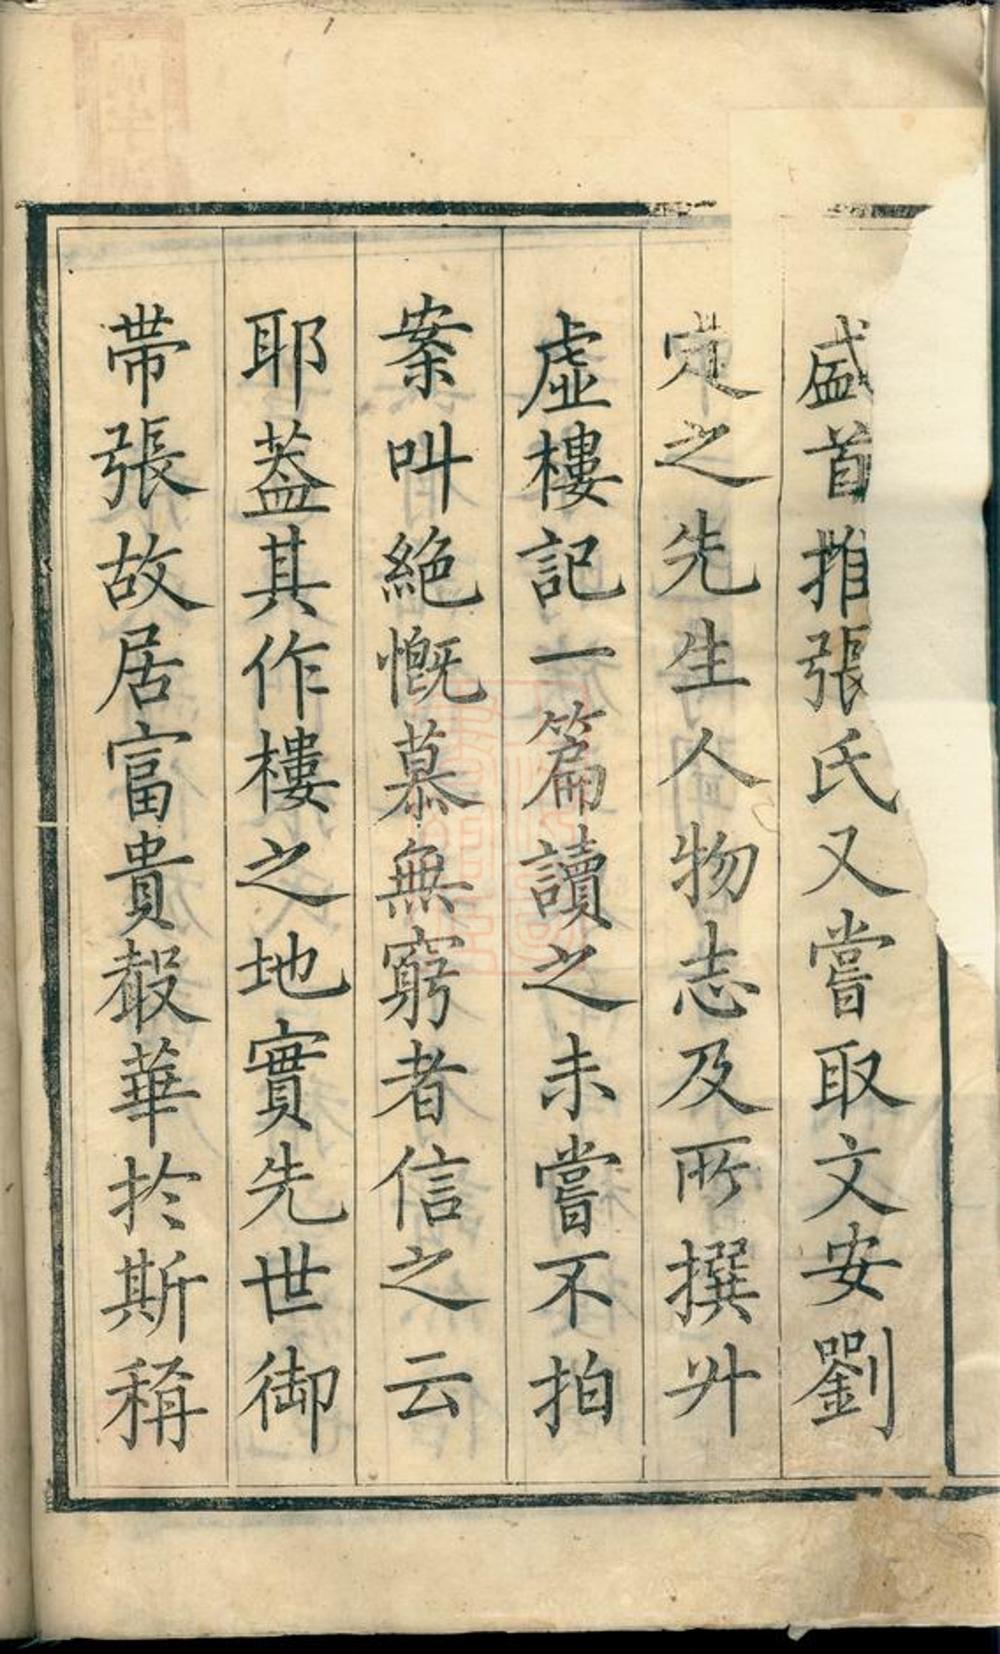 盛首推張氏又嘗取文安劉
定之先生人物志及所撰升
虛樓記一篇讀之未嘗不拍
案叫絕慨慕無窮者信之云
耶葢其作樓之地實先世御
帶張故居富貴縠華於斯稱